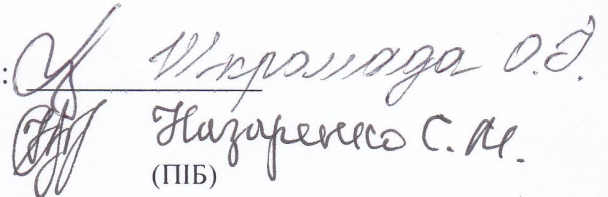 : Шкромада О.І.
Назаренко С.М.
(ПІБ)